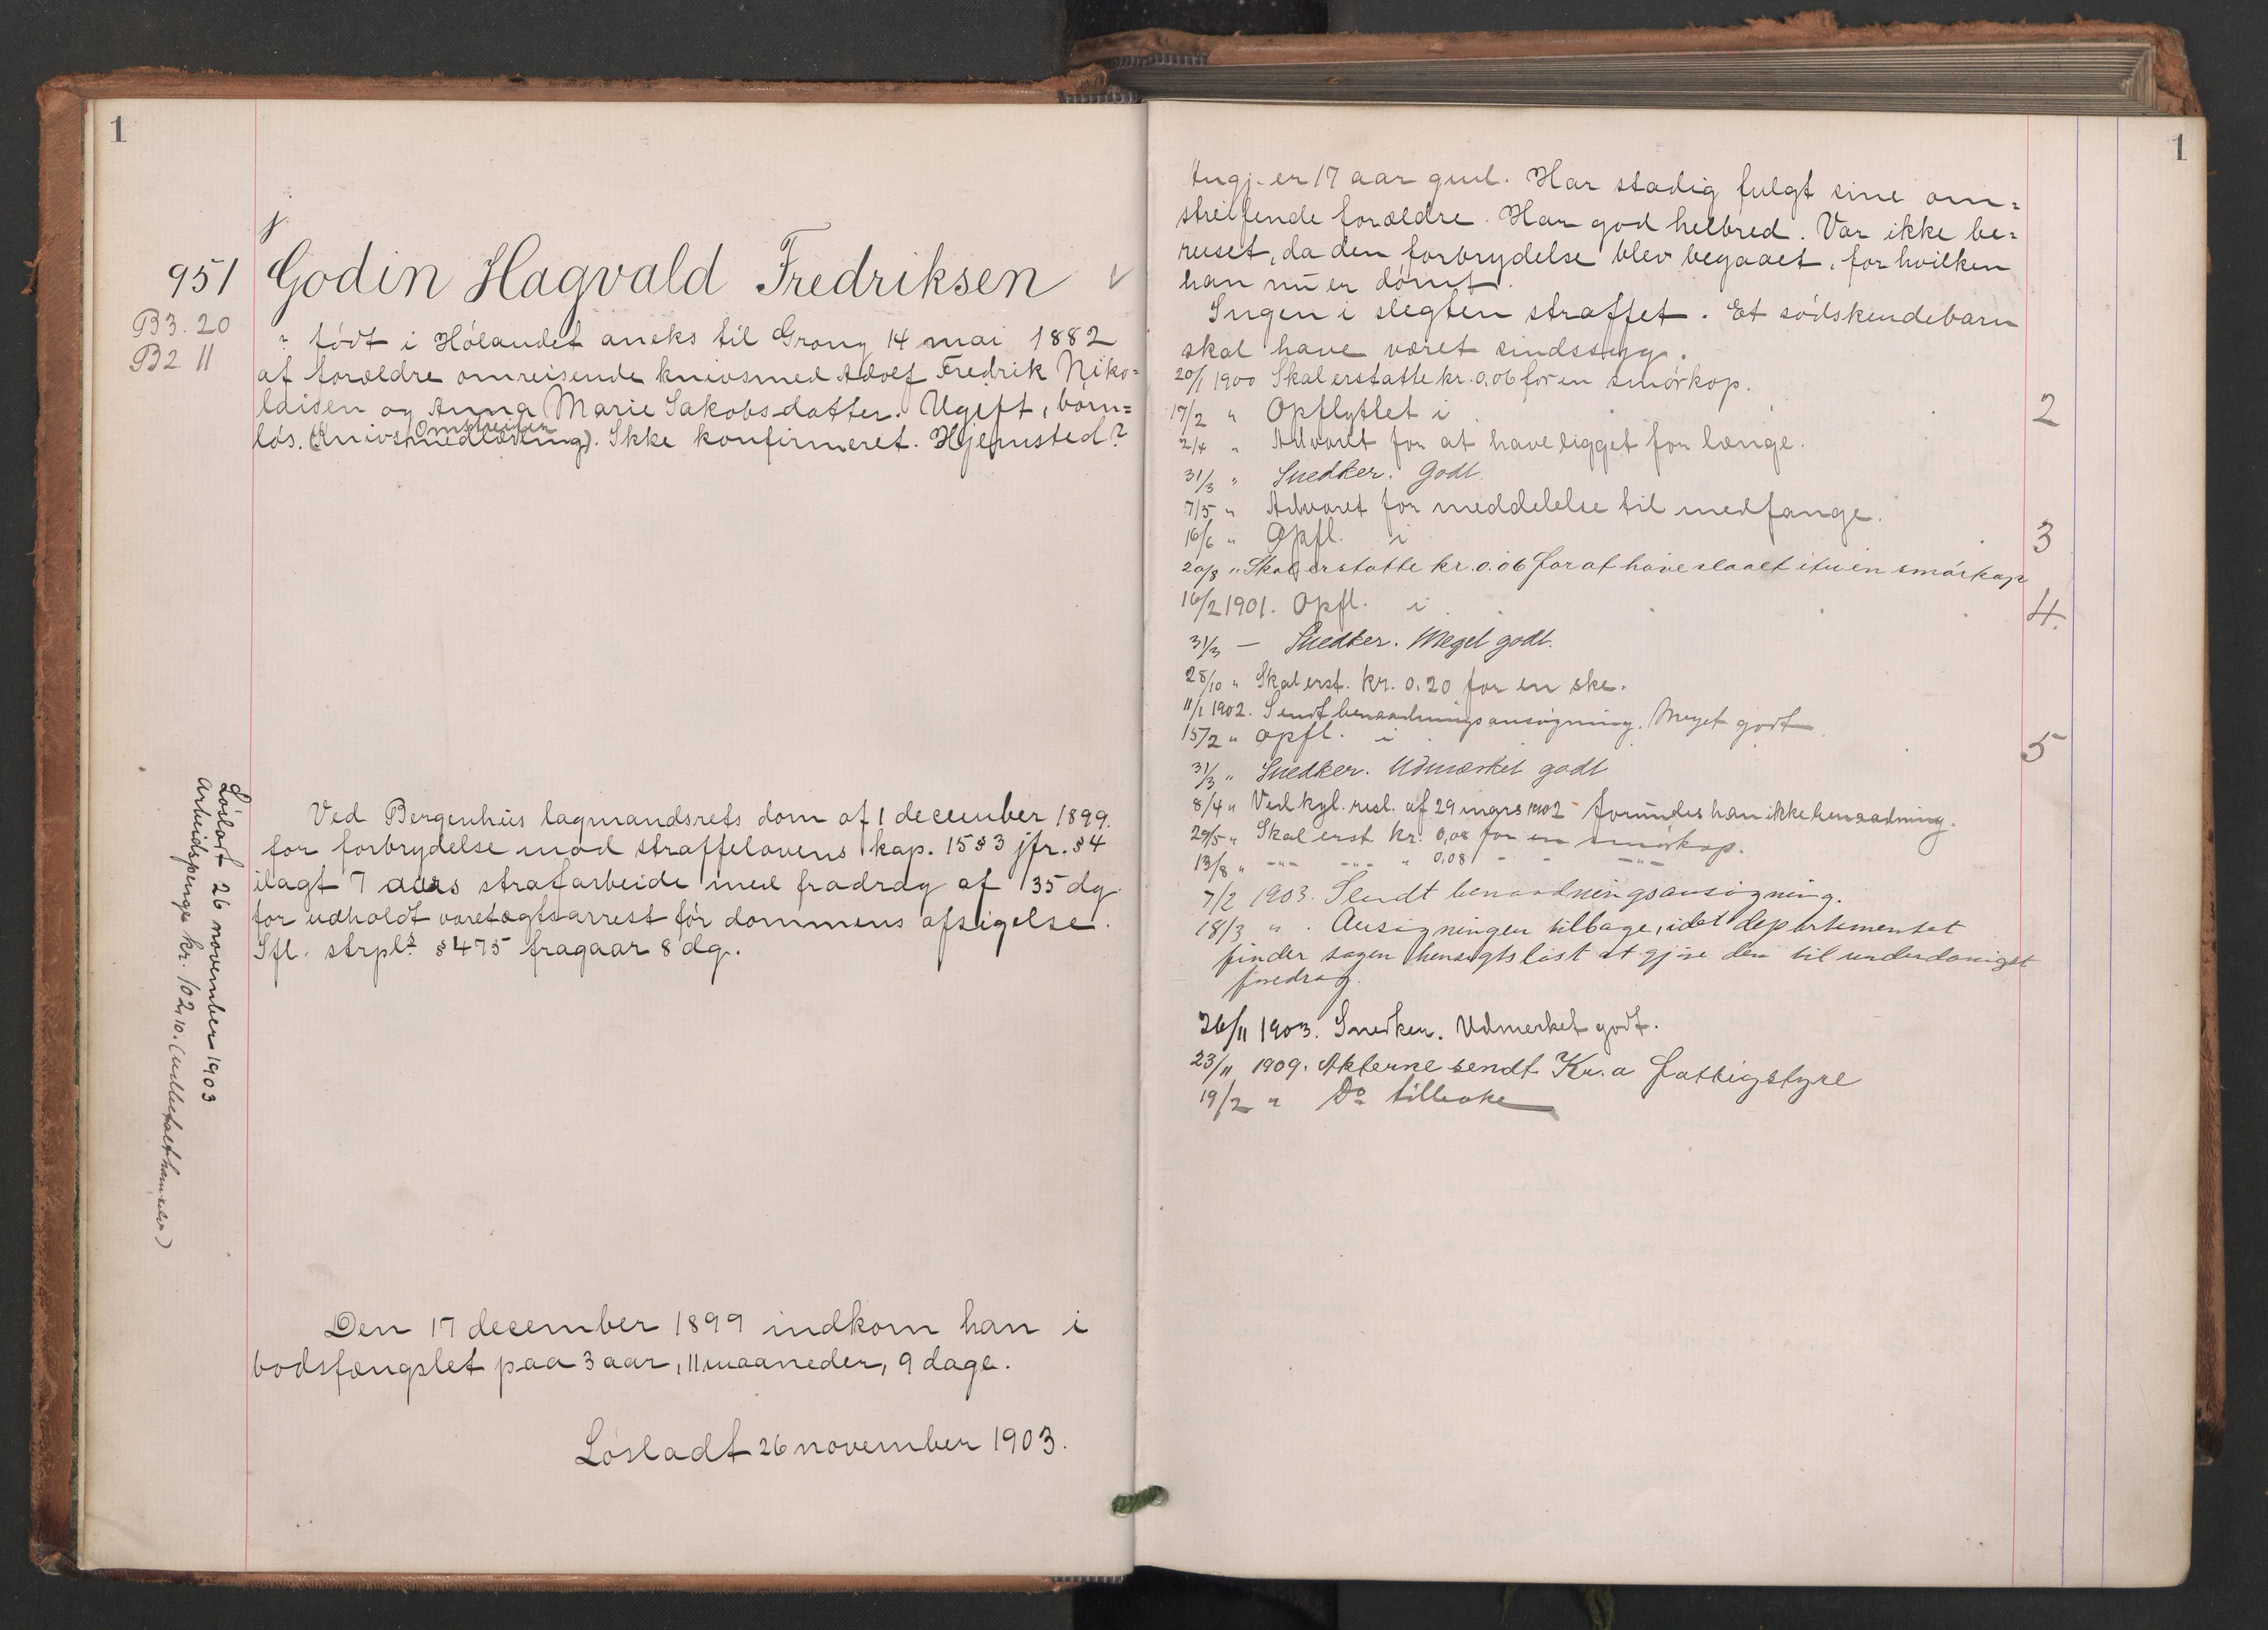 1
j.
951 Godin Hagvald Fredriksen
B3. 20
B2 11
født i Hölandet aneks til Grong 14 mai 1882
af forældre omreisende knivsmed Adolf Fredrik Niko=
laisen og Anna Marie Jakobsdatter. Ugift, barn=
Omstreifer
løs. (Knivsmedlærling). Ikke konfirmeret. Hjemsted?
Ved Bergenhus lagmandsrets dom af 1 december 1899
for forbrydelse mod straffelovens kap. 15 § 3 jfr. § 4
ilagt 7 aars strafarbeide med fradrag af 135 dg
for udholdt varetægtsarrest før dommens afsigelse.
Ifl. strpl.s § 475 fragaar 8 dg.
Løsladt 26 november 1903
Arbeidspenge kr. 102,10. (udbetalt ham selv)
Den 17 december 1899 indkom han i
bodsfængslet paa 3 aar, 11 maaneder, 9 dage.
Løsladt 26 november 1903.
1
Angj. er 17 aar gml. Har stadig fulgt sine om=
streifende forældre. Har god helbred. Var ikke be=
ruset, da den forbrydelse blev begaaet, for hvilken
han nu er dömt.
Ingen i slegten straffet. Et södskendebarn
skal have været sindssyg.
20/1 1900 Skal erstatte kr. 0,06 for en smörkop.
17/2 " Opflyttet i 2
2/4 " Advaret for at have ligget for længe.
31/3 " Snedker. Godt.
7/5 " Advaret for meddelelse til medfange.
16/6 " Opfl. i 3
20/8 " Skal erstatte kr. 0.06 for at have slaaet itu en smörkop
16/2 1901. Opfl. i 4.
31/3 — Snedker. Meget godt.
28/10 " Skal erst. kr. 0.20 for en ske.
11/1 1902. Sendt benaadningsansøgning. Meget godt
15/2 " Opfl. i 5
31/3 " Snedker. Udmærket godt
8/4 " Ved kgl. resl. af 29 mars 1902 forundes han ikke benaadning.
29/5 " Skal erst. kr. 0,08 for en smörkop.
13/8 " -"- -"- " 0,08 - - -"-
7/2 1903. Sendt benaadningsansøgning.
18/3 " . Ansøgningen tilbage, idet departementet
finder sagen hensigtsløst at gjøre den til underdanigst
foredrag.
26/11 1903. Snedker. Udmerket godt.
23/11 1909. Akterne sendt Kr.a fattigstyre
19/2 " Do tilbake